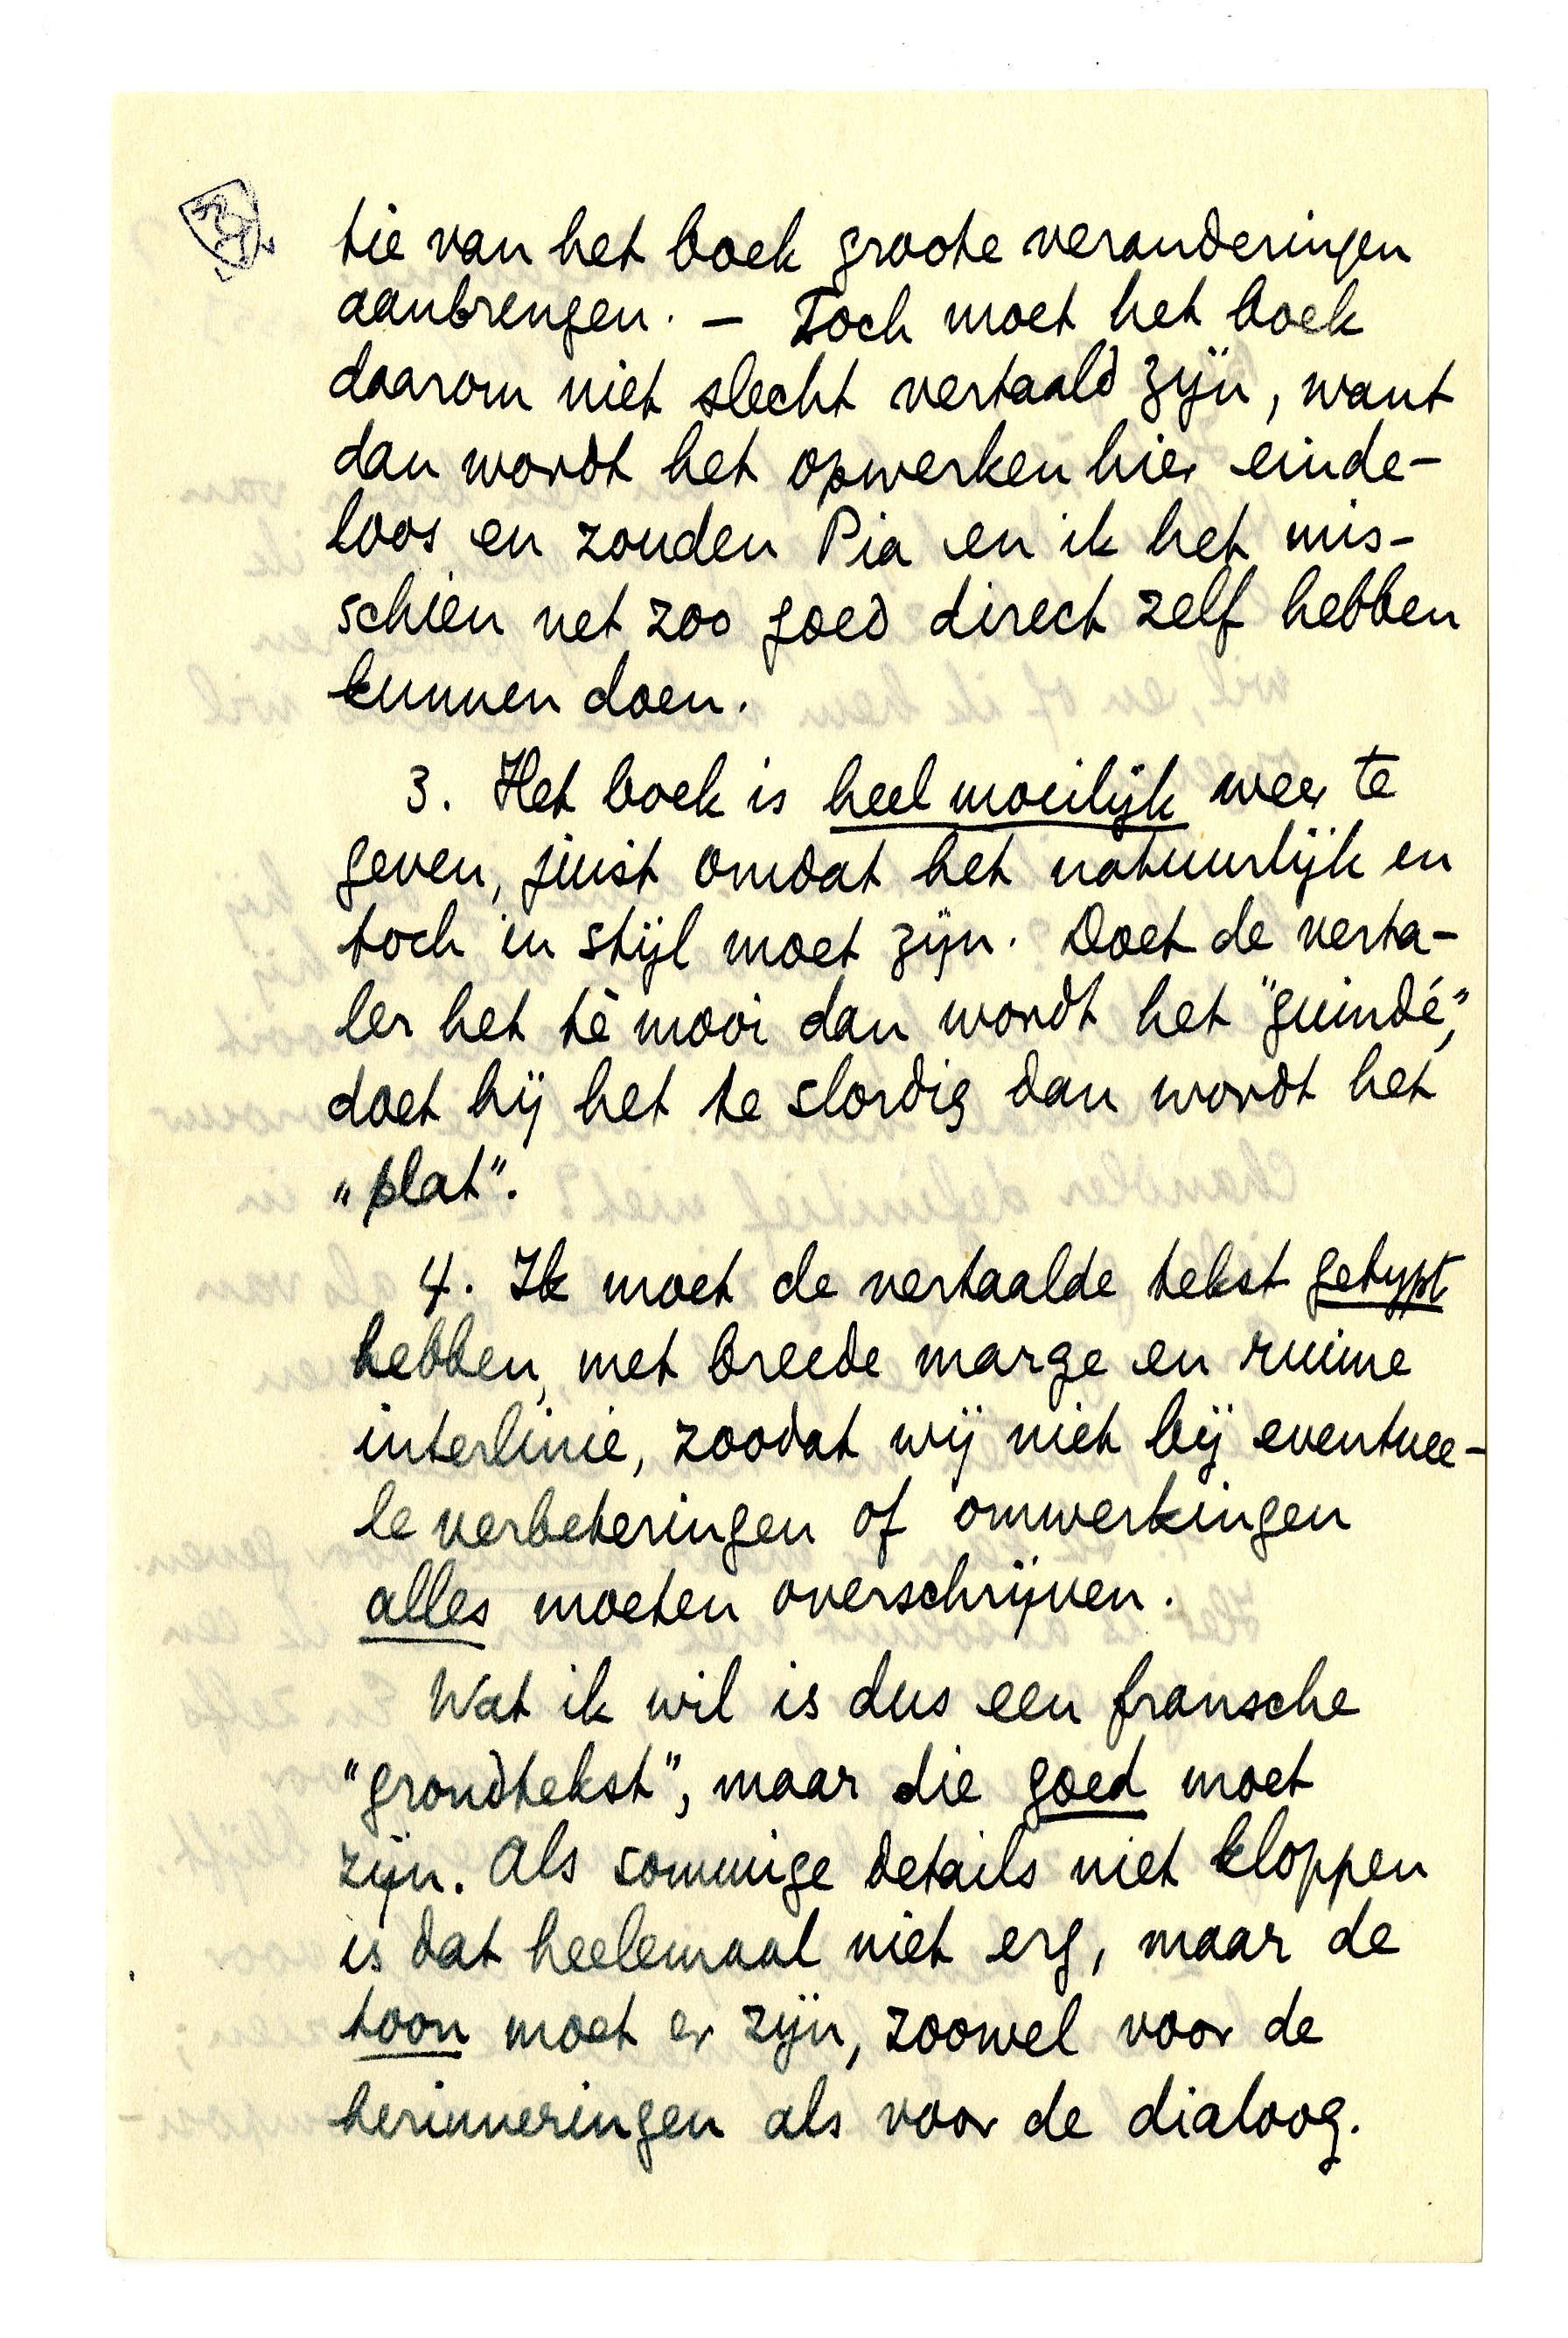 tie van het boek groote veranderingen
aanbrengen. — Toch moet het boek
daarom niet slecht vertaald zijn, want
dan wordt het opwerken hier einde-
loos en zouden Pia en ik het mis-
schien net zoo goed direct zelf hebben
kunnen doen.
3. Het boek is heel moeilijk weer te
geven, juist omdat het natuurlijk en
toch in stijl moet zijn. Doet de verta-
ler het tè mooi dan wordt het "guindé",
doet hij het te slordig dan wordt het
„plat".
4. Ik moet de vertaalde tekst getypt
hebben, met breede marge en ruime
interlinie, zoodat wij niet bij eventuee-
le verbeteringen of omwerkingen
alles moeten overschrijven.
Wat ik wil is dus een fransche
"grondtekst", maar die goed moet
zijn. Als sommige details niet kloppen
is dat heelemaal niet erg, maar de
toon moet er zijn, zoowel voor de
herinneringen als voor de dialoog.